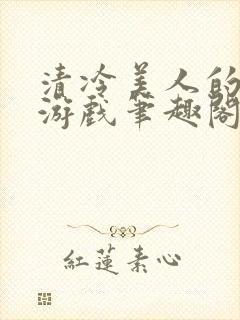 清冷美人的
游戏笔趣阁
红莲素心